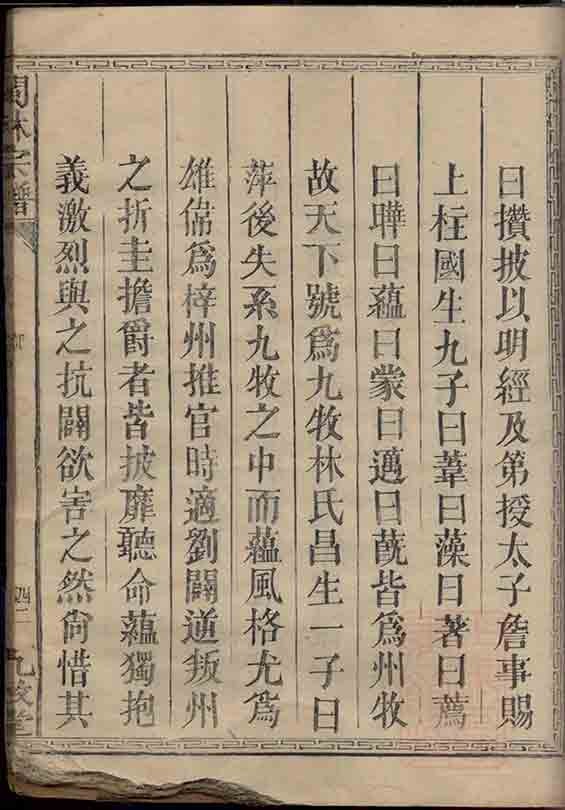 曰攢披以明經及第授太子詹事賜
上柱國生九子曰葦曰藻曰著曰薦
曰曄曰蘊曰蒙曰邁曰蔇皆為州牧
故天下號為九牧林氏昌生一子曰
萍後失系九牧之中而蘊風格尤為
雄偉為梓州推官時適劉闢逆叛州
之折圭擔爵者皆披靡聽命蘊獨抱
義激烈與之抗闢欲害之然尙惜其
林宗譜
四二
九牧堂